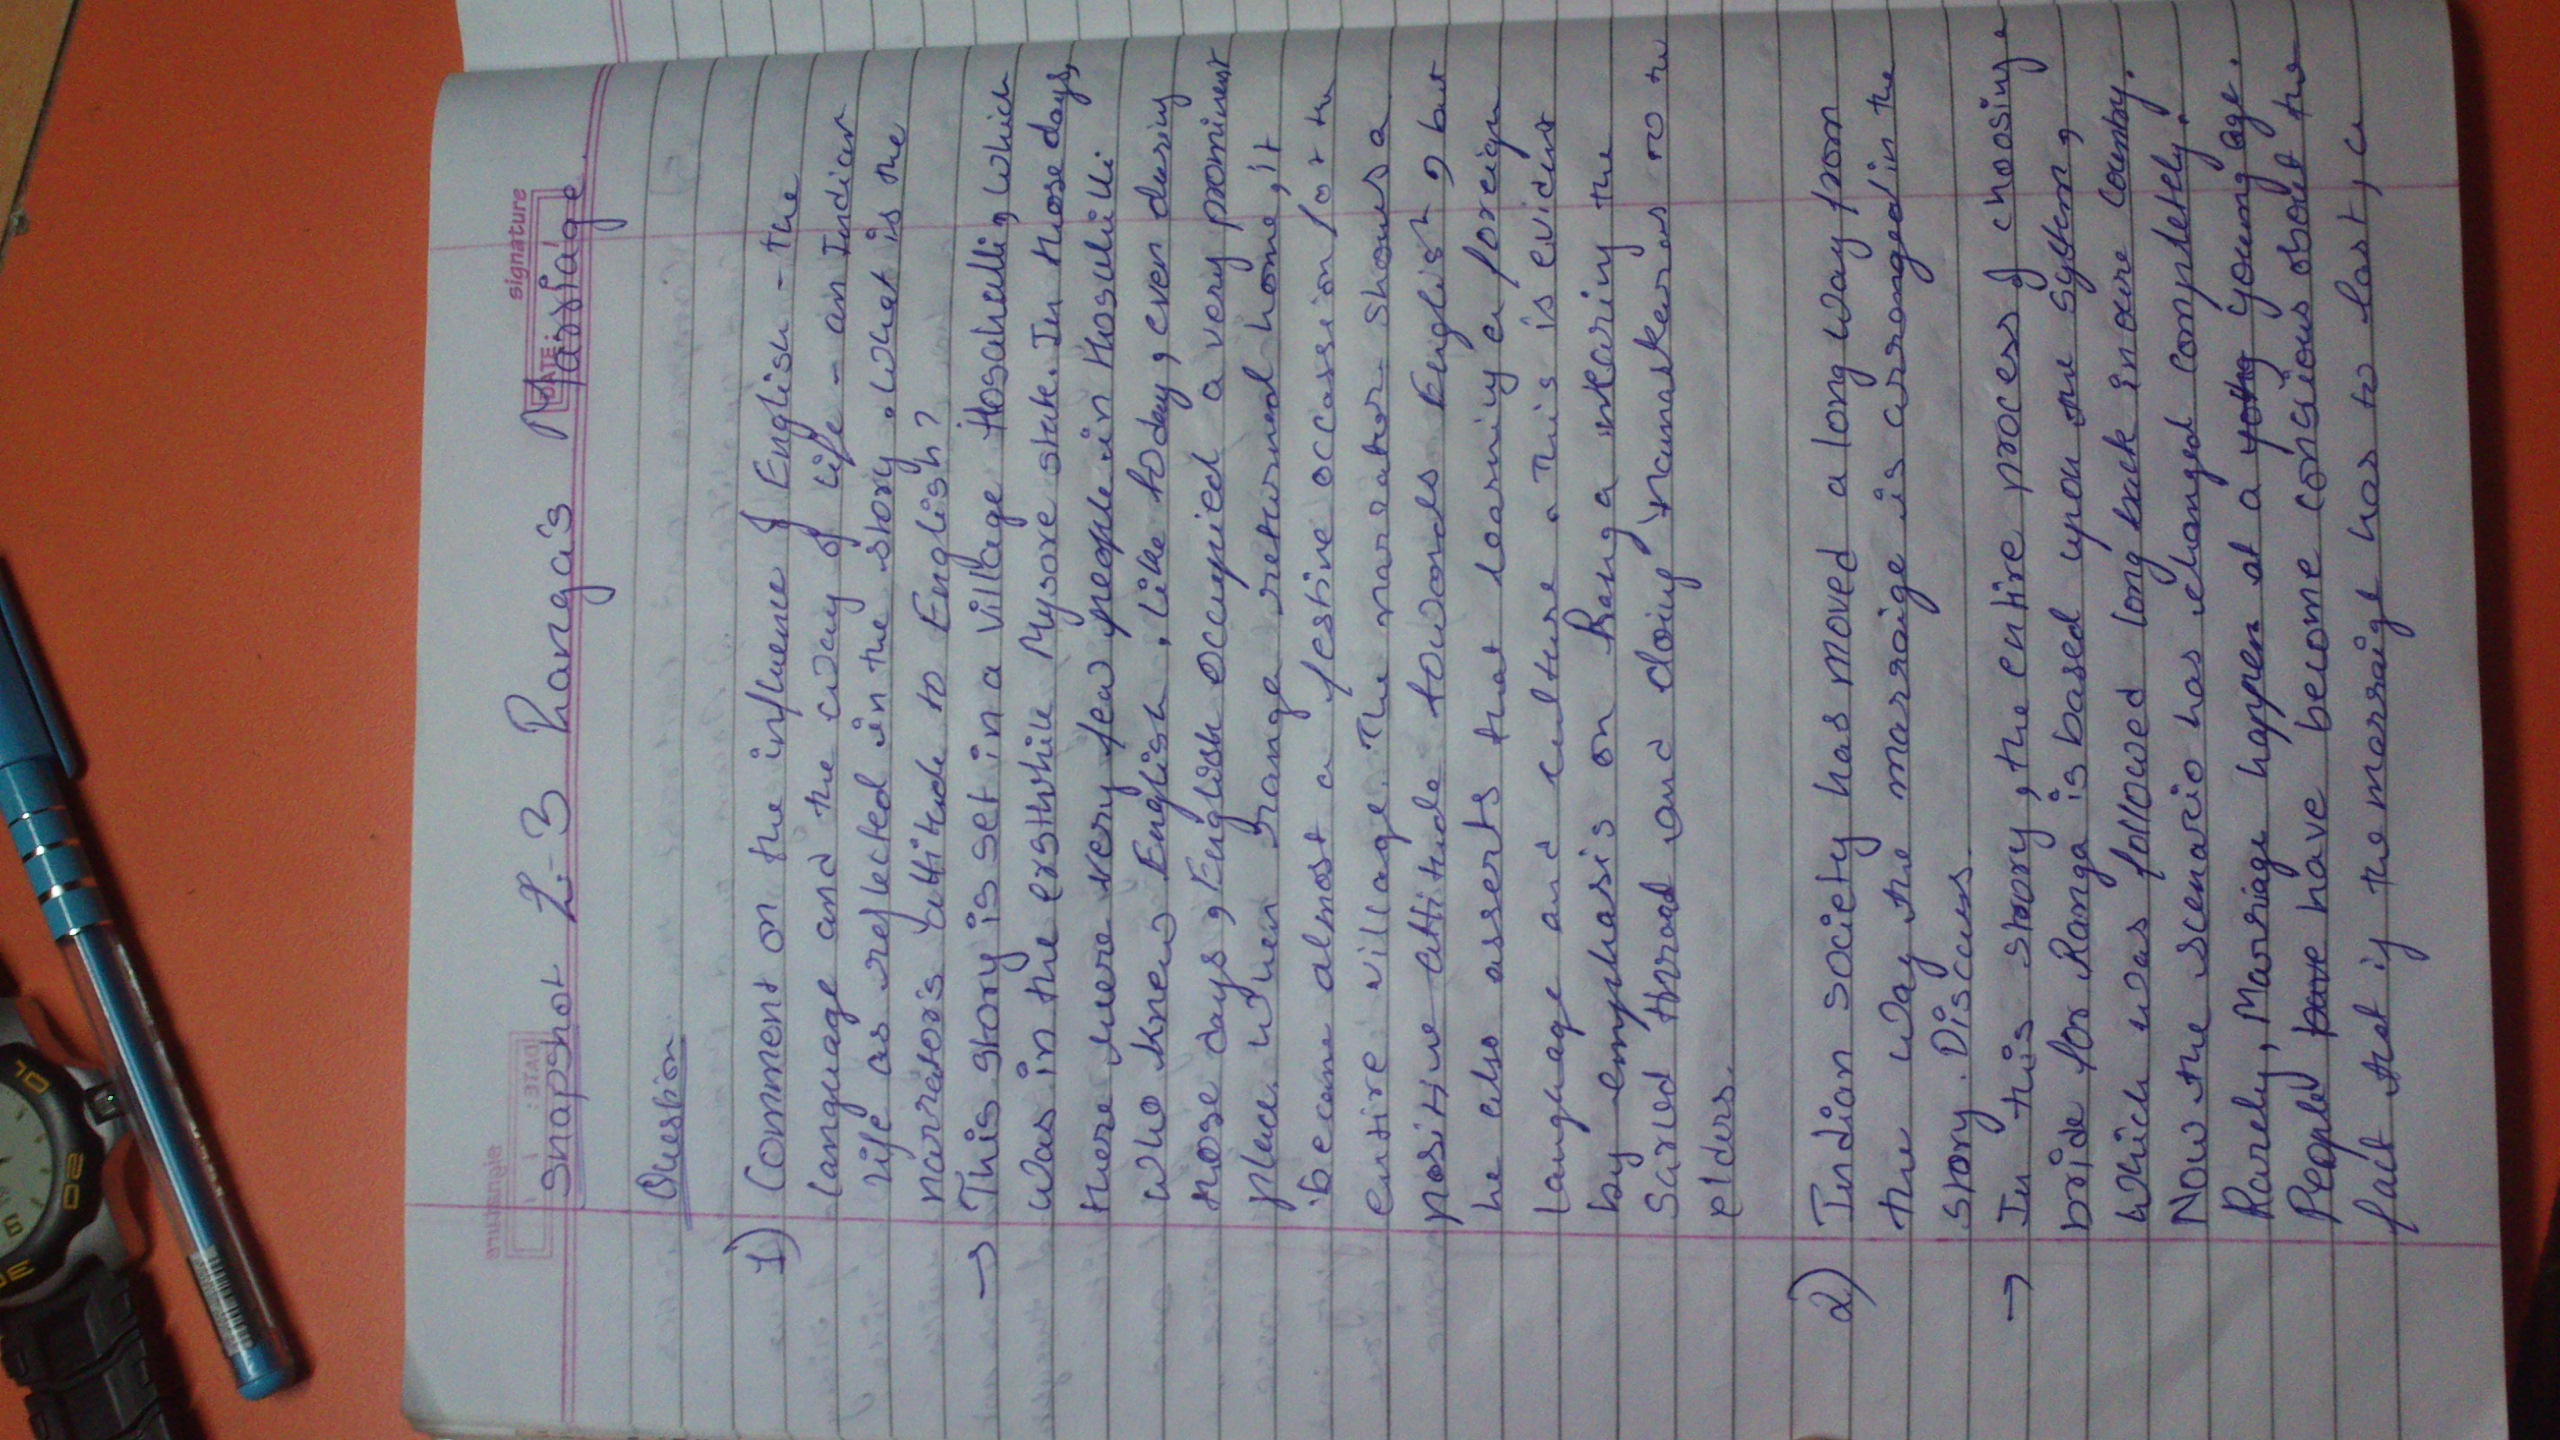 signature
DATE:
Snapshot L-3 Ranga's Marriage.
Question.
1) Comment on the influence of English - the
language and the way of life - on Indian
life as reflected in the story. What is the
narrator's attitude to English?
→ This story is set in a village Hosahalli, which
was in the erstwhile Mysore state. In those days,
there were very few people in Hosahalli
who knew English. Like today, even during
those days, English occupied a very prominent
place. When ranga returned home, it
became almost a festive occassion for the
entire village. The narrator shows a
positive attitude towards English, but
he also asserts that learning a foreign
language and culture. This is evident
by emphasis on Ranga wearing the
Sacred thread and doing namaskaras to the
elders.
2) Indian society has moved a long way from
the way the marraige is arranged in the
story. Discuss.
→ In this story, the entire process of choosing a
bride for Ranga is based upon the system,
which was followed long back in our country.
Now the scenario has changed completely.
Rarely, Marriage happen at a young age.
People have become conscious about the
fact that if the marraige has to last, a